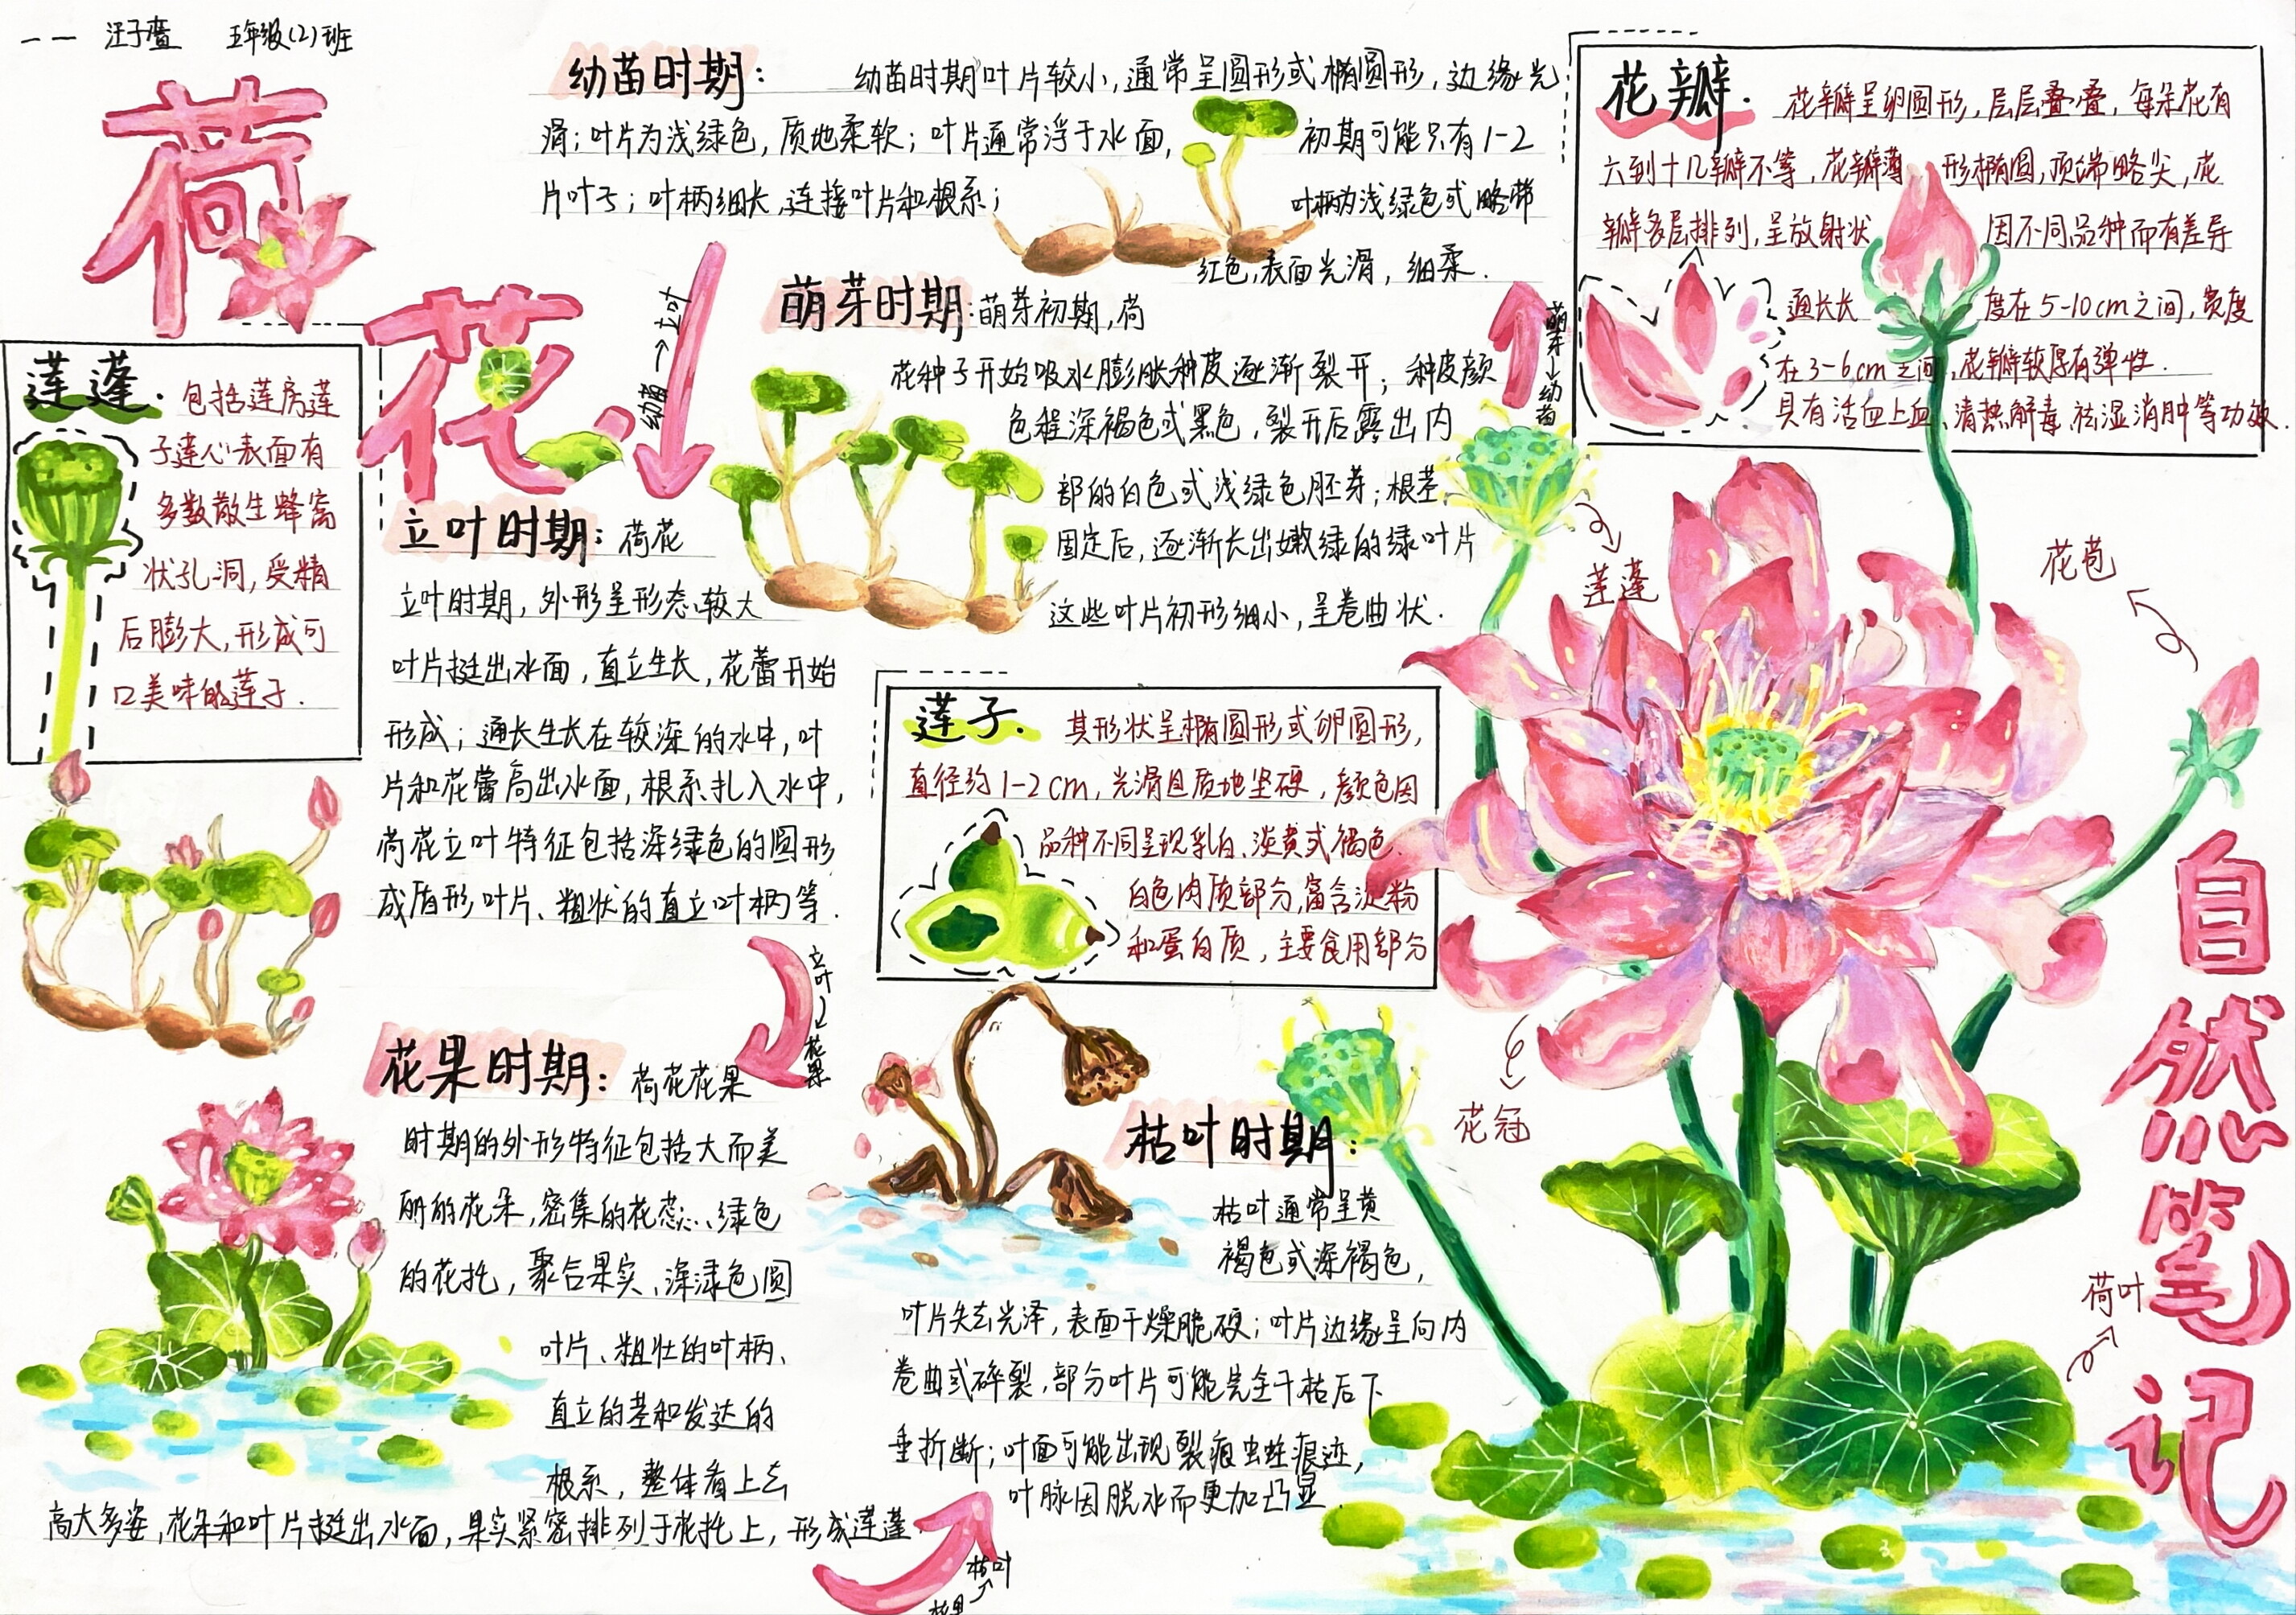 一一 汪子萱 五年级(2)班
荷
花
自然笔记
幼苗时期：幼苗时期叶片较小，通常呈圆形或椭圆形，边缘光
滑；叶片为浅绿色，质地柔软；叶片通常浮于水面，初期可能只有1-2
片叶子；叶柄细长，连接叶片和根系；叶柄为浅绿色或略带
红色，表面光滑，细柔.
萌芽→幼苗
萌芽时期：萌芽初期，荷
花种子开始吸水膨胀种皮逐渐裂开；种皮颜
色程深褐色或黑色，裂开后露出内
部的白色或浅绿色胚芽；根茎
固定后，逐渐长出嫩绿的绿叶片
这些叶片初形细小，呈卷曲状.
幼苗→立叶
立叶时期：荷花
立叶时期，外形呈形态较大
叶片挺出水面，直立生长，花蕾开始
形成；通长生长在较深的水中，叶
片和花蕾高出水面，根系扎入水中，
荷花立叶特征包括深绿色的圆形
或盾形叶片、粗状的直立叶柄等.
立叶→花果
花果时期：荷花花果
时期的外形特征包括大而美
丽的花朵，密集的花蕊、绿色
的花托，聚合果实、深绿色圆
叶片、粗壮的叶柄、
直立的茎和发达的
根系，整体看上去
高大多姿，花朵和叶片挺出水面，果实紧密排列于花托上，形成莲蓬.
花果→枯叶
枯叶时期：
枯叶通常呈黄
褐色或深褐色，
叶片失去光泽，表面干燥脆硬；叶片边缘呈向内
卷曲或碎裂，部分叶片可能完全干枯后下
垂折断；叶面可能出现裂痕虫蛀痕迹，
叶脉因脱水而更加凸显.
莲蓬.包括莲房莲
子莲心表面有
多数散生蜂窝
状孔洞，受精
后膨大，形成可
口美味的莲子.
莲子.其形状呈椭圆形或卵圆形，
直径约1-2cm，光滑且质地坚硬，颜色因
品种不同呈现乳白、淡黄或褐色.
白色肉质部分，富含淀粉
和蛋白质，主要食用部分
花瓣.花瓣呈卵圆形，层层叠叠，每朵花有
六到十几瓣不等，花瓣薄形椭圆，顶端略尖，花
瓣多层排列，呈放射状因不同品种而有差异
通长长度在5-10cm之间，宽度
在3-6cm之间，花瓣较厚有弹性.
具有活血上血、清热解毒、祛湿消肿等功效.
莲蓬
花苞
花冠
荷叶